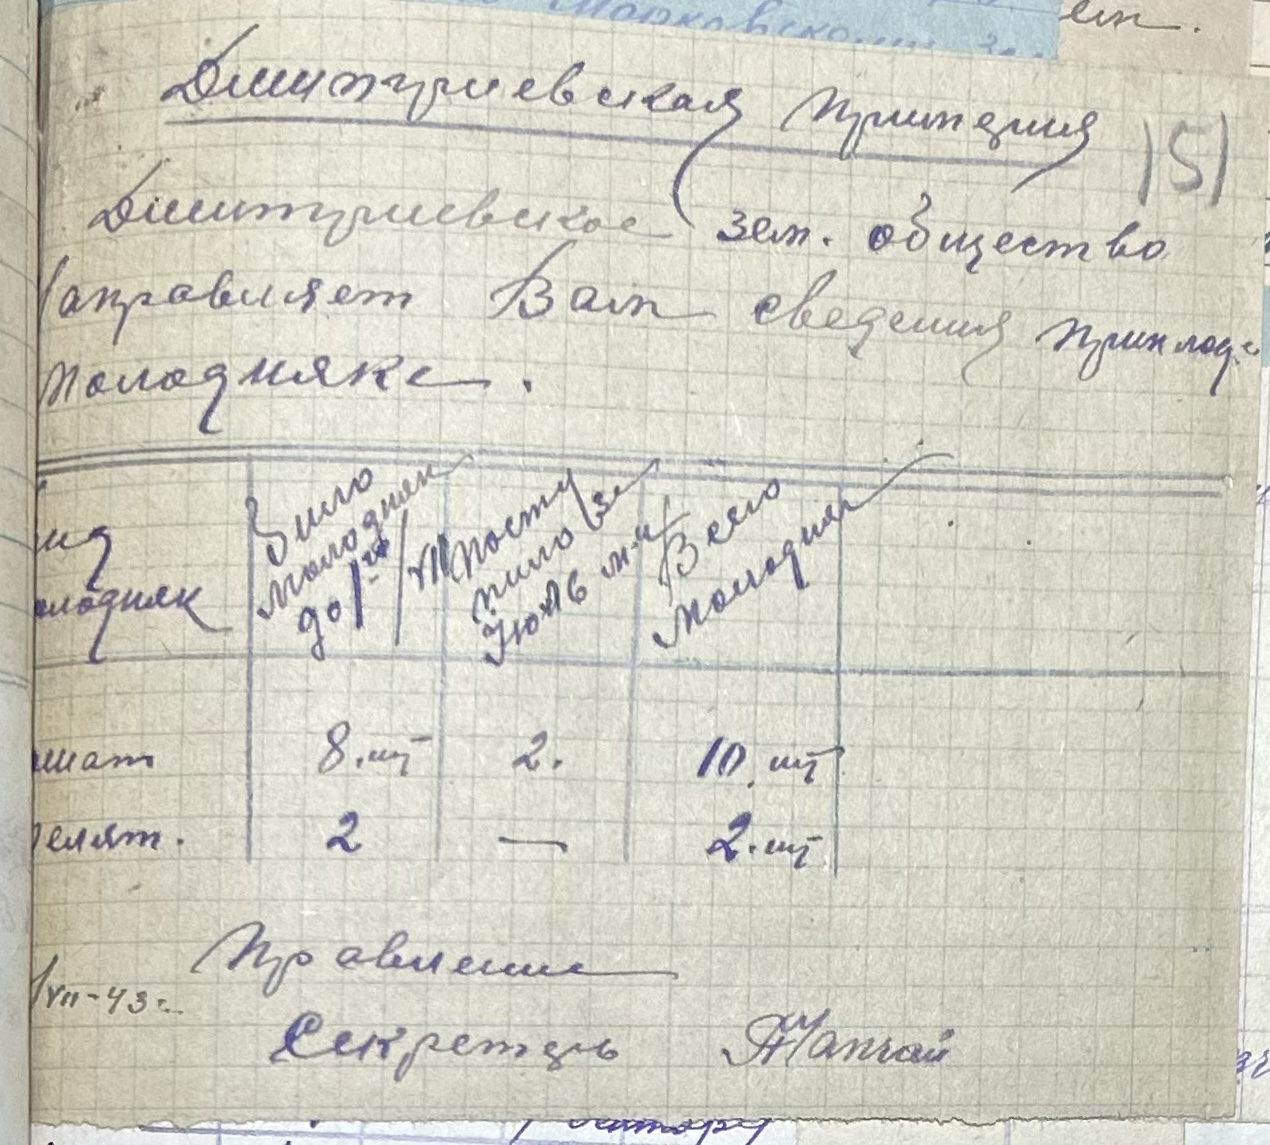 Дмитриевская
151
Дмитриевское зем. общество
направляет Вам сведения приплод
молодняке.
Вид
молодняк
Было
молодняк
до 1-го/VII
Посту
пило за
Июль м-ц
Всего
молодняк
8.шт 2. 10.шт
телят. 2 — 2.шт
Правление
/VII-43г.
Секретарь